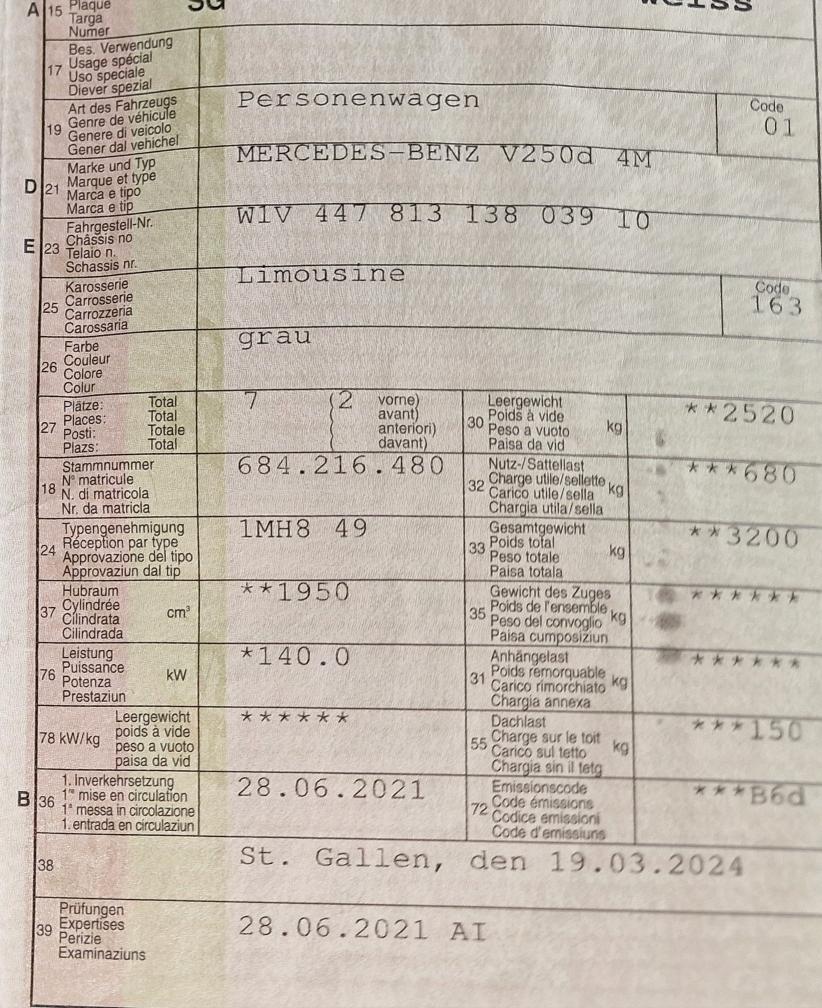 A 15 Plaque SG weiss
Targa
Numer
17 Bes. Verwendung
Usage spécial
Uso speciale
Diever spezial
19 Art des Fahrzeugs Personenwagen Code 01
Genre de véhicule
Genere di veicolo
Gener dal vehichel
D 21 Marke und Typ MERCEDES-BENZ V250d 4M
Marque et type
Marca e tipo
Marca e tip
E 23 Fahrgestell-Nr. W1V 447 813 138 039 10
Châssis no
Telaio n.
Schassis nr.
25 Karosserie Limousine Code 163
Carrosserie
Carrozzeria
Carossaria
26 Farbe grau
Couleur
Colore
Colur
27 Plätze: Total 7 (2 vorne)
Places: Total avant)
Posti: Totale anteriori)
Plazs: Total davant)
30 Leergewicht kg **2520
Poids à vide
Peso a vuoto
Paisa da vid
18 Stammnummer 684.216.480
N° matricule
N. di matricola
Nr. da matricla
32 Nutz-/Sattellast kg ***680
Charge utile/sellette
Carico utile/sella
Chargia utila/sella
24 Typengenehmigung 1MH8 49
Réception par type
Approvazione del tipo
Approvaziun dal tip
33 Gesamtgewicht kg **3200
Poids total
Peso totale
Paisa totala
37 Hubraum cm³ **1950
Cylindrée
Cilindrata
Cilindrada
35 Gewicht des Zuges kg ******
Poids de l'ensemble
Peso del convoglio
Paisa cumposiziun
76 Leistung kW *140.0
Puissance
Potenza
Prestaziun
31 Anhängelast kg ******
Poids remorquable
Carico rimorchiato
Chargia annexa
78 kW/kg Leergewicht ******
poids à vide
peso a vuoto
paisa da vid
55 Dachlast kg ***150
Charge sur le toit
Carico sul tetto
Chargia sin il tetg
B 36 1. Inverkehrsetzung 28.06.2021
1re mise en circulation
1a messa in circolazione
1. entrada en circulaziun
72 Emissionscode ***B6d
Code émissions
Codice emissioni
Code d'emissiuns
38 St. Gallen, den 19.03.2024
39 Prüfungen 28.06.2021 AI
Expertises
Perizie
Examinaziuns